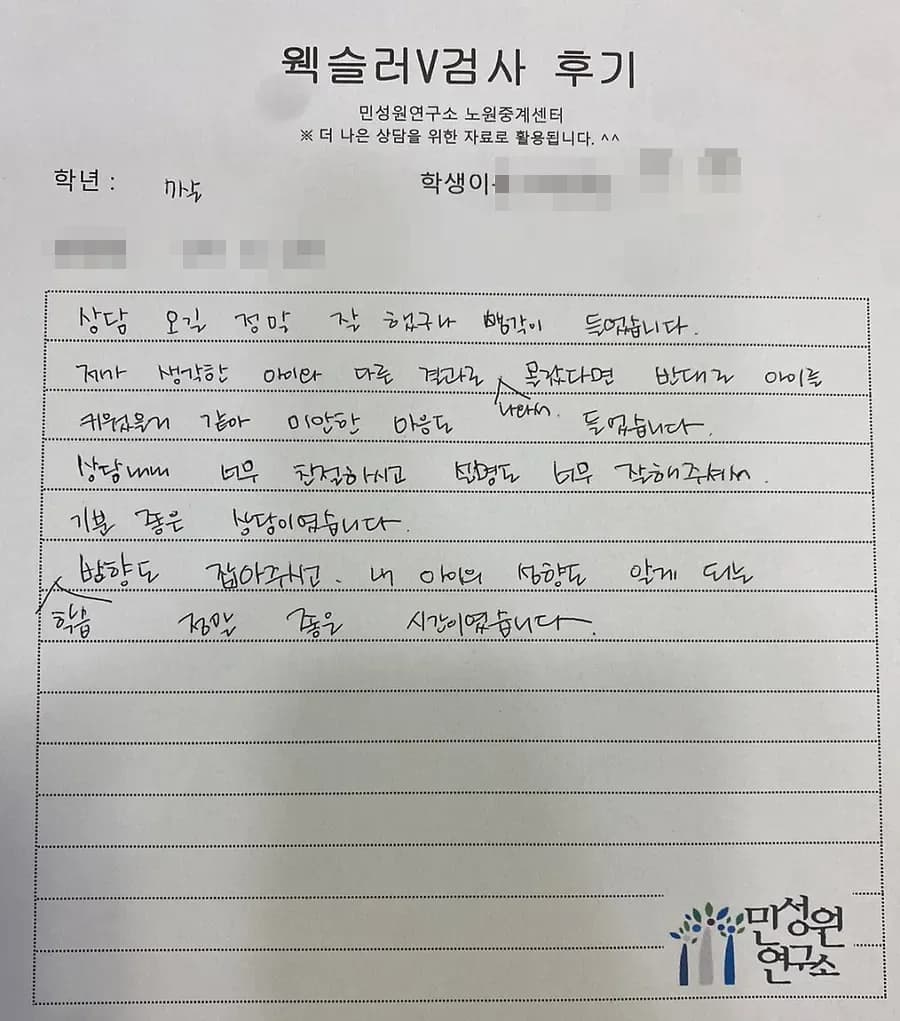 웩슬러V검사 후기
민성원연구소 노원중계센터
※ 더 나은 상담을 위한 자료로 활용됩니다. ^^
학년 :
학생이
상담 오길 정말 잘 했구나 생각이 들었습니다.
제가 생각한 아이와 다른 결과로 나와서. 몰랐다면 반대로 아이를
키웠을거 같아 미안한 마음도 들었습니다.
상담내내 너무 친절하시고 설명도 너무 잘해주셔서.
기분 좋은 상담이였습니다.
학습 방향도 잡아주시고. 내 아이의 성향도 알게 되는
정말 좋은 시간이였습니다.
민성원
연구소